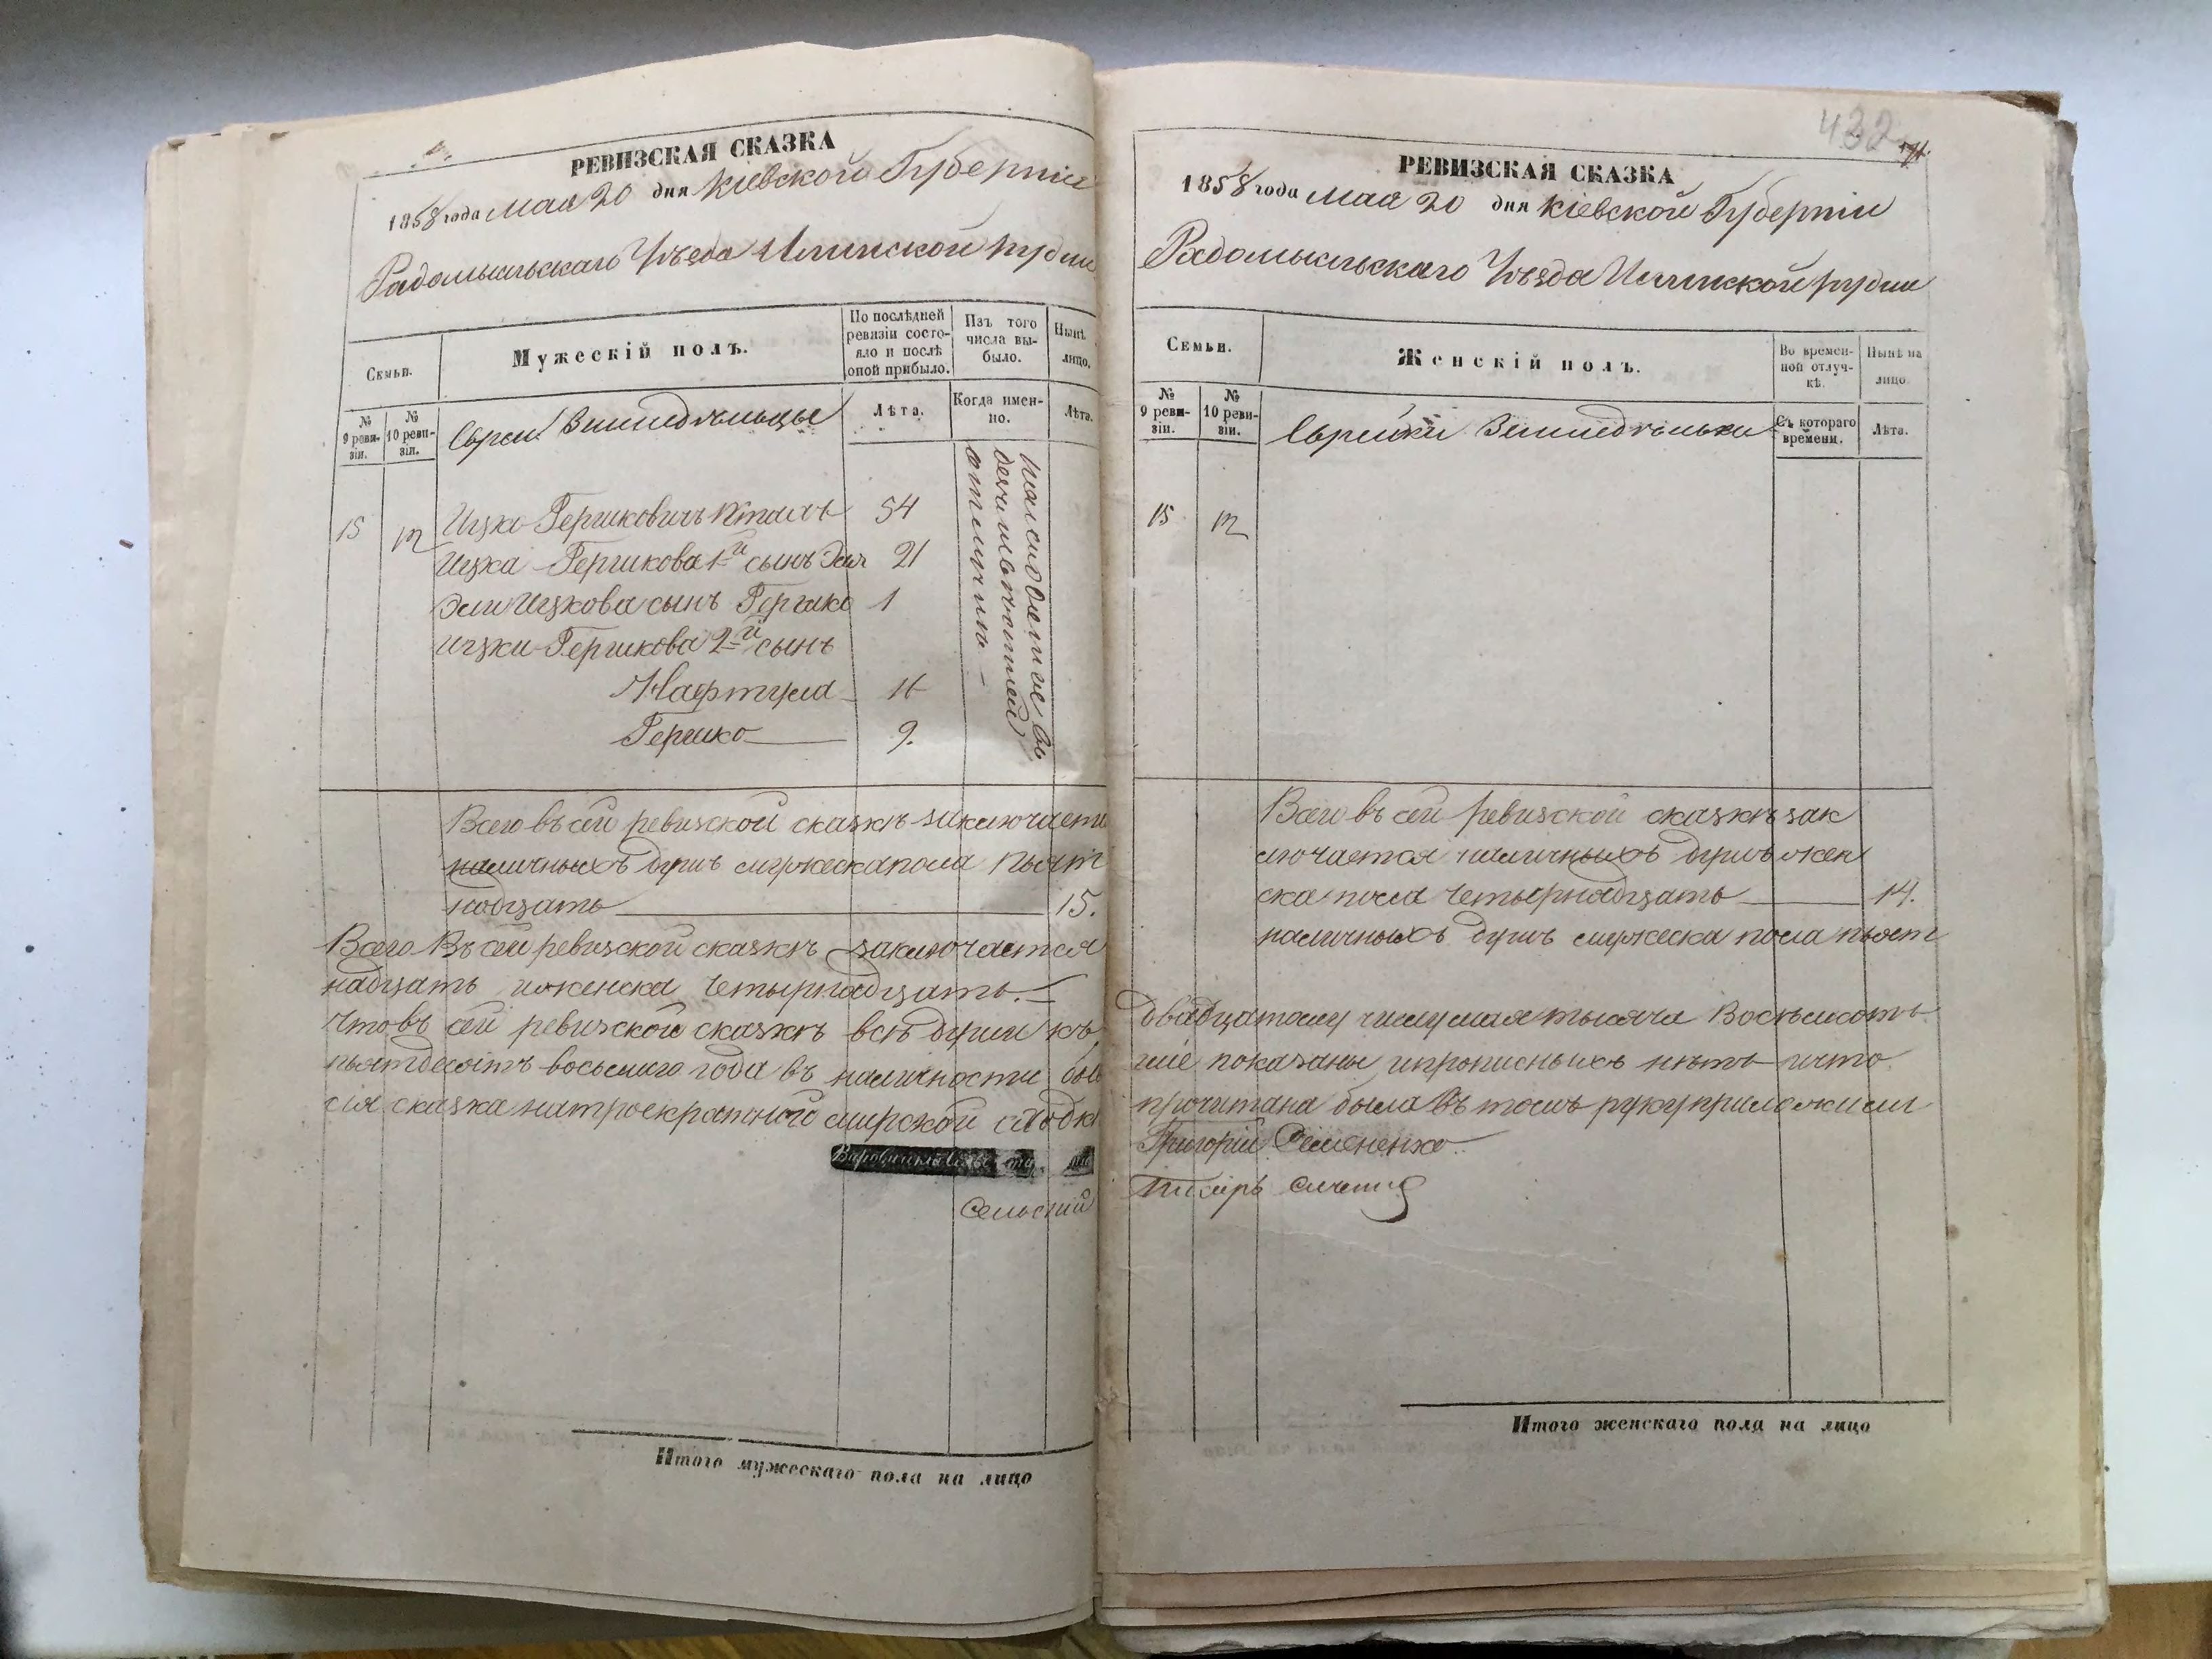 РЕВИЗСКАЯ СКАЗКА
1858 года Мая 20 дня Кіевской Губерніи
Радомысльскаго Уѣзда Илинской рудни
Семьи.
Мужескій полъ.
По послѣдней ревизіи состояло и послѣ оной прибыло.
Изъ того числа выбыло.
Нынѣ лицо.
№ 9 ревизіи.
№ 10 ревизіи.
Евреи Земледѣльцы
Лѣта.
Когда именно.
Лѣта.
15
Ицко Гершковичъ 54
Ицка Гершкова 1й сынъ Эля 21
Эли Ицкова сынъ Гершко 1
Ицки Гершкова 2й сынъ
Нафтула 16
Гершко 9.
Всего въ сей ревизской сказкѣ заключаетс
наличныхъ душъ мужеска пола пьят
надцать 15.
Всего Въ сей ревизской сказкѣ заключается
надцать и женска четырнадцать.
Что въ сей ревизской сказкѣ всѣ души къ
пьятдесятъ восьмого года въ наличности
сія сказка на троекратной мирской сходк
Сельскій
Итого мужескаго пола на лицо
432
РЕВИЗСКАЯ СКАЗКА
1858 года Мая 20 дня Кіевской Губерніи
Радомысльскаго Уѣзда Илинской рудни
Семьи.
Женскій полъ.
Во временной отлучкѣ.
Нынѣ на лицо.
№ 9 ревизіи.
№ 10 ревизіи.
Еврейки Земледѣльки
Съ котораго времени.
Лѣта.
15
Всего въ сей ревизской сказкѣ зак
лючается наличныхъ душъ жен
ска пола четырнадцать 14.
наличныхъ душъ мужеска пола пьят
двадцатому числу мая тысяча Восемьсотъ
показаны и прописныхъ нѣтъ и что
прочитана была въ томъ руку приложили
Григорій Семененко
Писарь
Итого женскаго пола на лицо